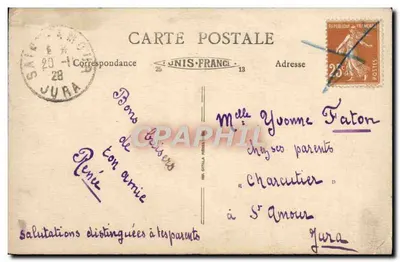 CARTE POSTALE
Correspondance
UNIS-FRANCE
Adresse
JURA
28
25c
POSTES
Bons baisers
de
ton amie
Renée
Salutations distinguées à tes parents
Melle Yvonne Faton
chez ses parents
"Charcutier"
à St Amour
Jura
CPAPHIL